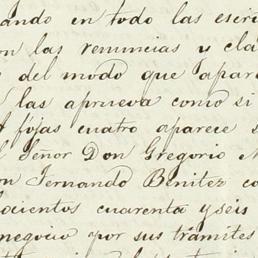 ando en todo las escri
on las renuncias y cla
s del modo que apare
las aprueva como si
fojas cuatro aparece s
l Señor Don Gregorio M
on Fernando Benitez co
ocientos cuarenta y seis
negocio por sus trámites